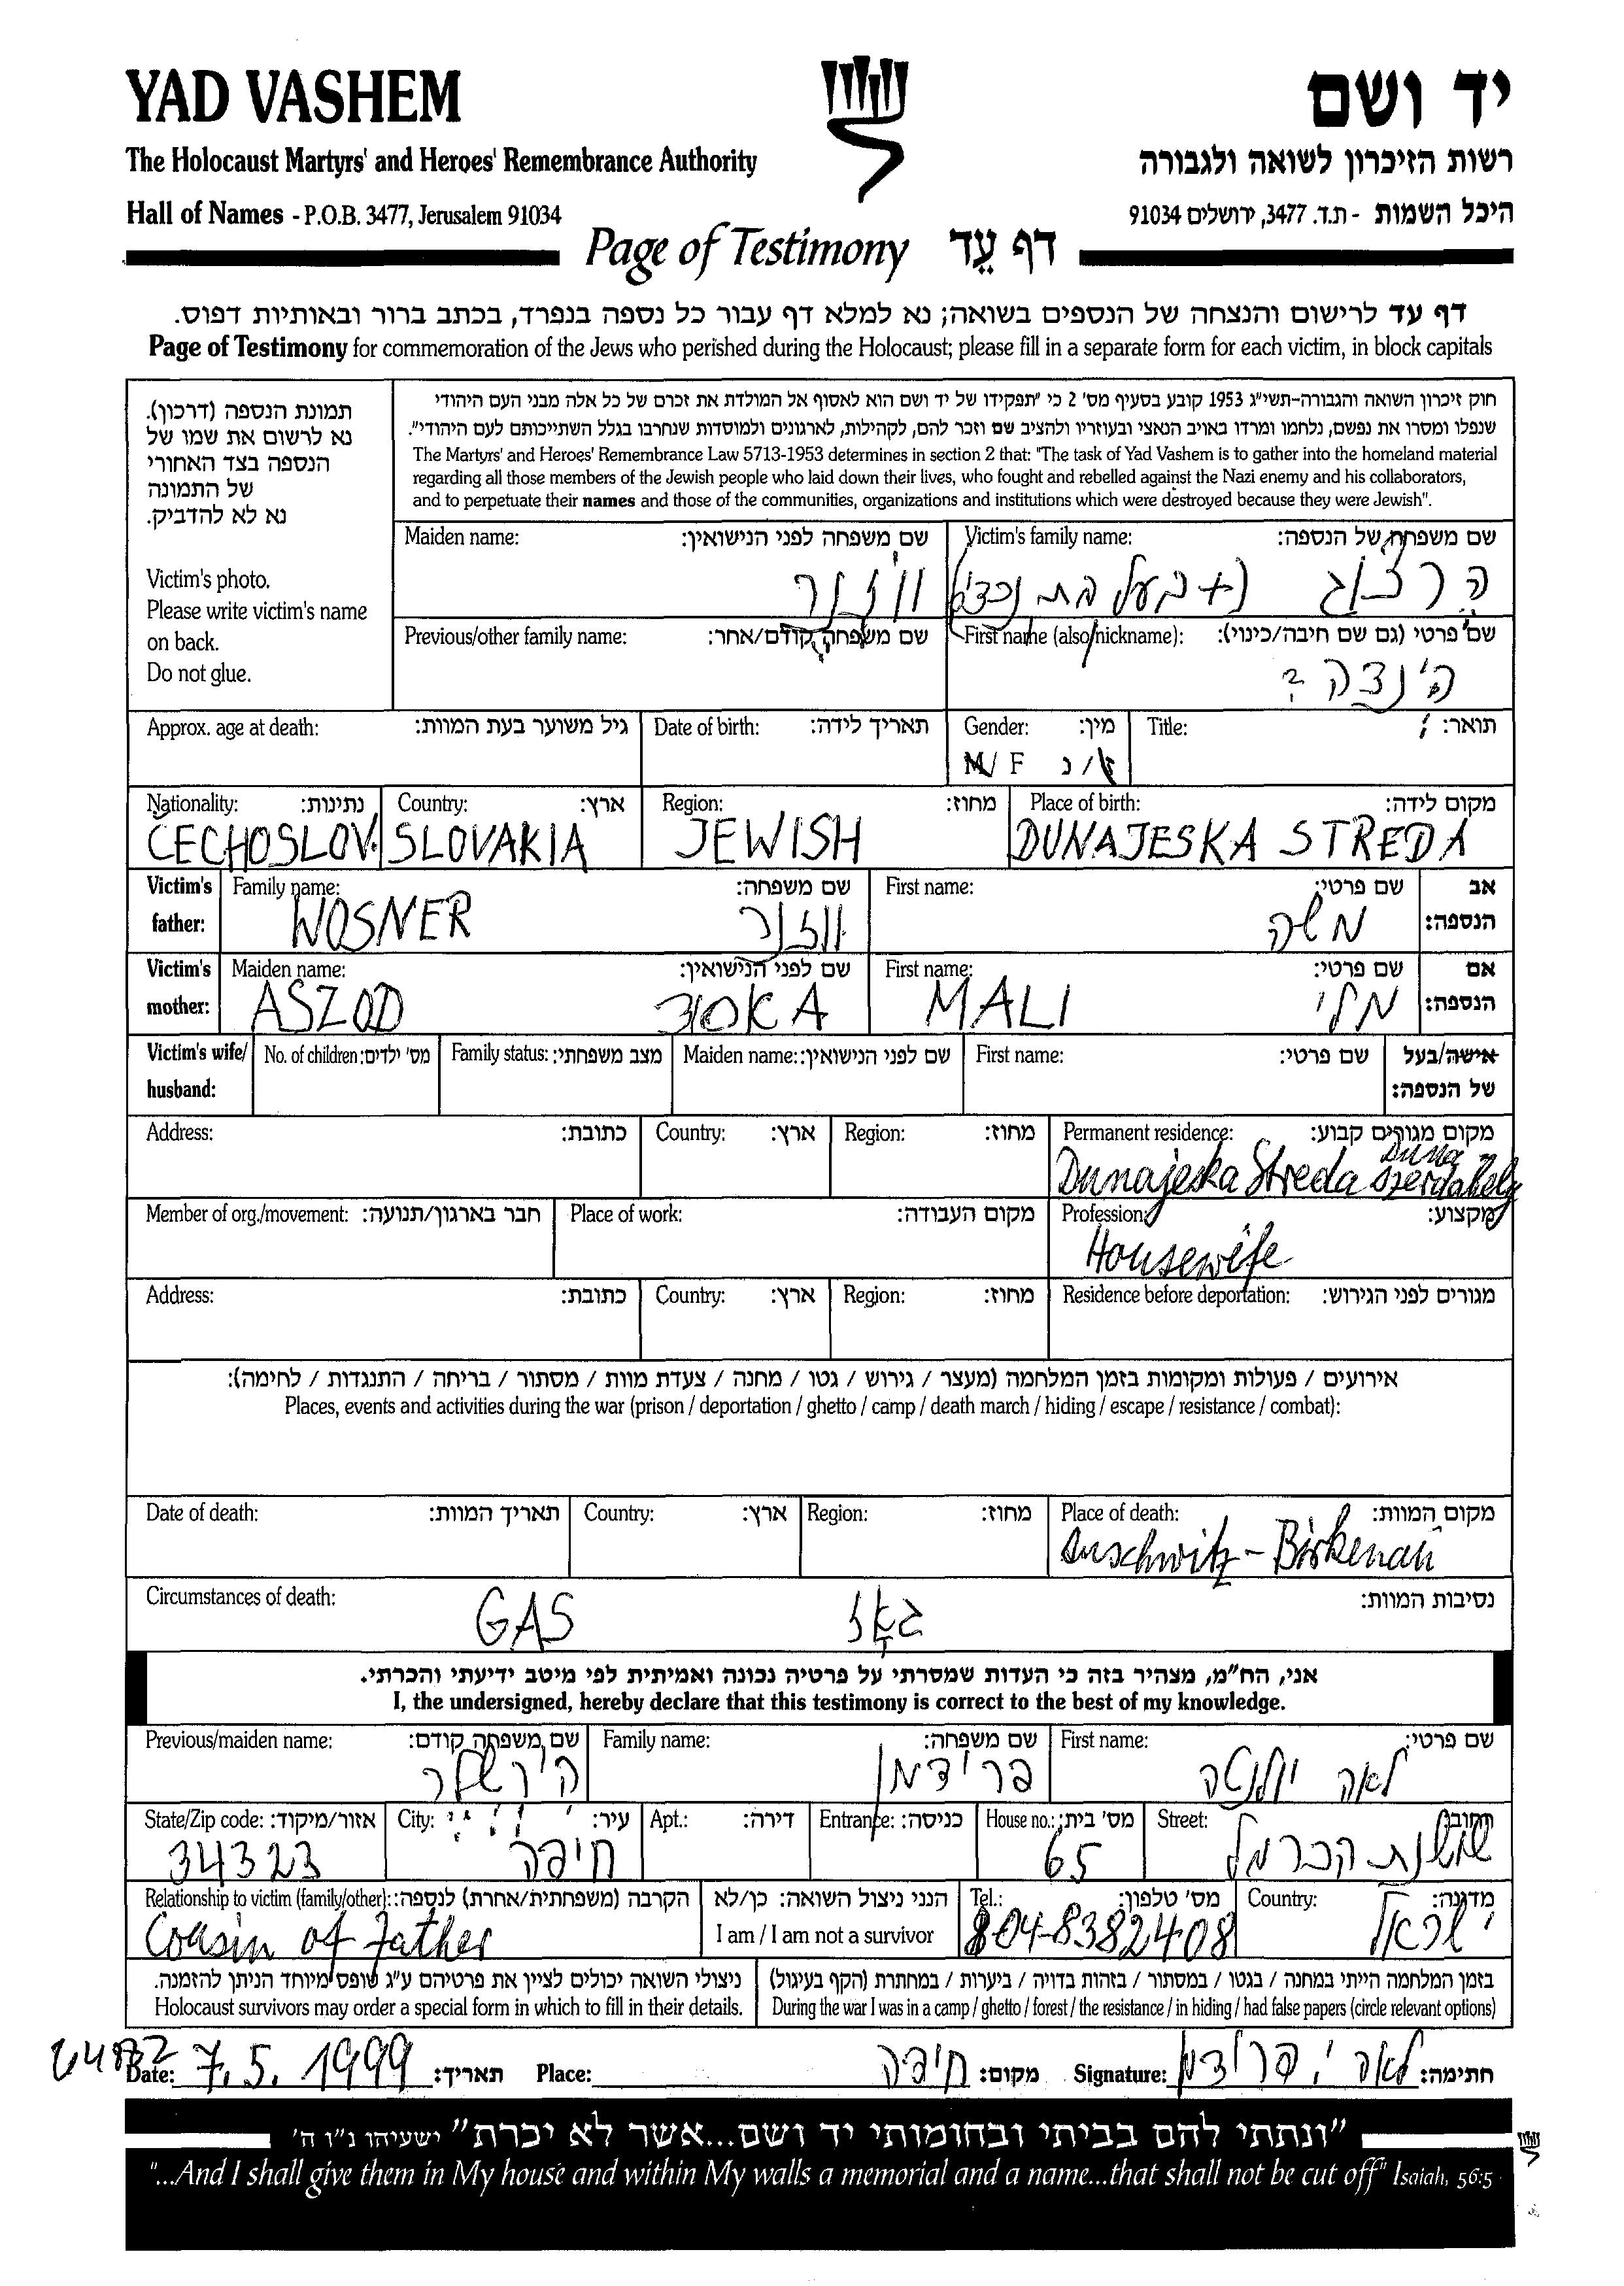 YAD VASHEM
יד ושם
The Holocaust Martyrs' and Heroes' Remembrance Authority
רשות הזיכרון לשואה ולגבורה
Hall of Names - P.O.B. 3477, Jerusalem 91034
היכל השמות - ת.ד. 3477, ירושלים 91034
Page of Testimony דף עֵד
דף עד לרישום והנצחה של הנספים בשואה; נא למלא דף עבור כל נספה בנפרד, בכתב ברור ובאותיות דפוס.
Page of Testimony for commemoration of the Jews who perished during the Holocaust; please fill in a separate form for each victim, in block capitals
תמונת הנספה (דרכון).
נא לרשום את שמו של
הנספה בצד האחורי
של התמונה
נא לא להדביק.
Victim's photo.
Please write victim's name
on back.
Do not glue.
חוק זיכרון השואה והגבורה-תשי"ג 1953 קובע בסעיף מס' 2 כי "תפקידו של יד ושם הוא לאסוף אל המולדת את זכרם של כל אלה מבני העם היהודי
שנפלו ומסרו את נפשם, נלחמו ומרדו באויב הנאצי ובעוזריו ולהציב שם וזכר להם, לקהילות, לארגונים ולמוסדות שנחרבו בגלל השתייכותם לעם היהודי".
The Martyrs' and Heroes' Remembrance Law 5713-1953 determines in section 2 that: "The task of Yad Vashem is to gather into the homeland material
regarding all those members of the Jewish people who laid down their lives, who fought and rebelled against the Nazi enemy and his collaborators,
and to perpetuate their names and those of the communities, organizations and institutions which were destroyed because they were Jewish".
Victim's family name: שם משפחה של הנספה:
הרצוג (+ בעל בת ונכדים)
Maiden name: שם משפחה לפני הנישואין:
ווזנר
First name (also nickname): שם פרטי (גם שם חיבה/כינוי):
הינצה ?
Previous/other family name: שם משפחה קודם/אחר:
Title: תואר:
Gender: מין:
M/F ז/נ
Date of birth: תאריך לידה:
Approx. age at death: גיל משוער בעת המוות:
Place of birth: מקום לידה:
DUNAJESKA STREDA
Region: מחוז:
JEWISH
Country: ארץ:
SLOVAKIA
Nationality: נתינות:
CECHOSLOV.
Victim's father: אב הנספה:
First name: שם פרטי:
משה
Family name: שם משפחה:
WOSNER ווזנר
Victim's mother: אם הנספה:
First name: שם פרטי:
MALI מלי
Maiden name: שם לפני הנישואין:
ASZOD
Victim's wife/husband: אישה/בעל של הנספה:
First name: שם פרטי:
Maiden name: שם לפני הנישואין:
Family status: מצב משפחתי:
No. of children: מס' ילדים:
Permanent residence: מקום מגורים קבוע:
Dunajeska Streda Duna szerdahely
Region: מחוז:
Country: ארץ:
Address: כתובת:
Profession: מקצוע:
Housewife
Place of work: מקום העבודה:
Member of org./movement: חבר בארגון/תנועה:
Residence before deportation: מגורים לפני הגירוש:
Region: מחוז:
Country: ארץ:
Address: כתובת:
אירועים / פעולות ומקומות בזמן המלחמה (מעצר / גירוש / גטו / מחנה / צעדת מוות / מסתור / בריחה / התנגדות / לחימה):
Places, events and activities during the war (prison / deportation / ghetto / camp / death march / hiding / escape / resistance / combat):
Place of death: מקום המוות:
Auschwitz - Birkenau
Region: מחוז:
Country: ארץ:
Date of death: תאריך המוות:
Circumstances of death: נסיבות המוות:
GAS גאז
אני, הח"מ, מצהיר בזה כי העדות שמסרתי על פרטיה נכונה ואמיתית לפי מיטב ידיעתי והכרתי.
I, the undersigned, hereby declare that this testimony is correct to the best of my knowledge.
First name: שם פרטי:
לאה יולנטה
Family name: שם משפחה:
פרידמן
Previous/maiden name: שם משפחה קודם:
הירשלר
Street: רחוב:
שושנת הכרמל
House no.: מס' בית:
65
Entrance: כניסה:
Apt.: דירה:
City: עיר:
חיפה
State/Zip code: אזור/מיקוד:
34323
Country: מדינה:
ישראל
Tel.: מס' טלפון:
04-8382408
הנני ניצול השואה: כן/לא
I am / I am not a survivor
Relationship to victim (family/other): הקרבה (משפחתית/אחרת) לנספה:
Cousin of father
בזמן המלחמה הייתי במחנה / בגטו / במסתור / בזהות בדויה / ביערות / במחתרת (הקף בעיגול)
During the war I was in a camp / ghetto / forest / the resistance / in hiding / had false papers (circle relevant options)
ניצולי השואה יכולים לציין את פרטיהם ע"ג טופס מיוחד הניתן להזמנה.
Holocaust survivors may order a special form in which to fill in their details.
Date: 7.5.1999 תאריך: Place: חיפה מקום: Signature: לאה י. פרידמן חתימה:
"ונתתי להם בביתי ובחומותי יד ושם...אשר לא יכרת" ישעיהו נ"ו ה'
"...And I shall give them in My house and within My walls a memorial and a name...that shall not be cut off" Isaiah, 56:5